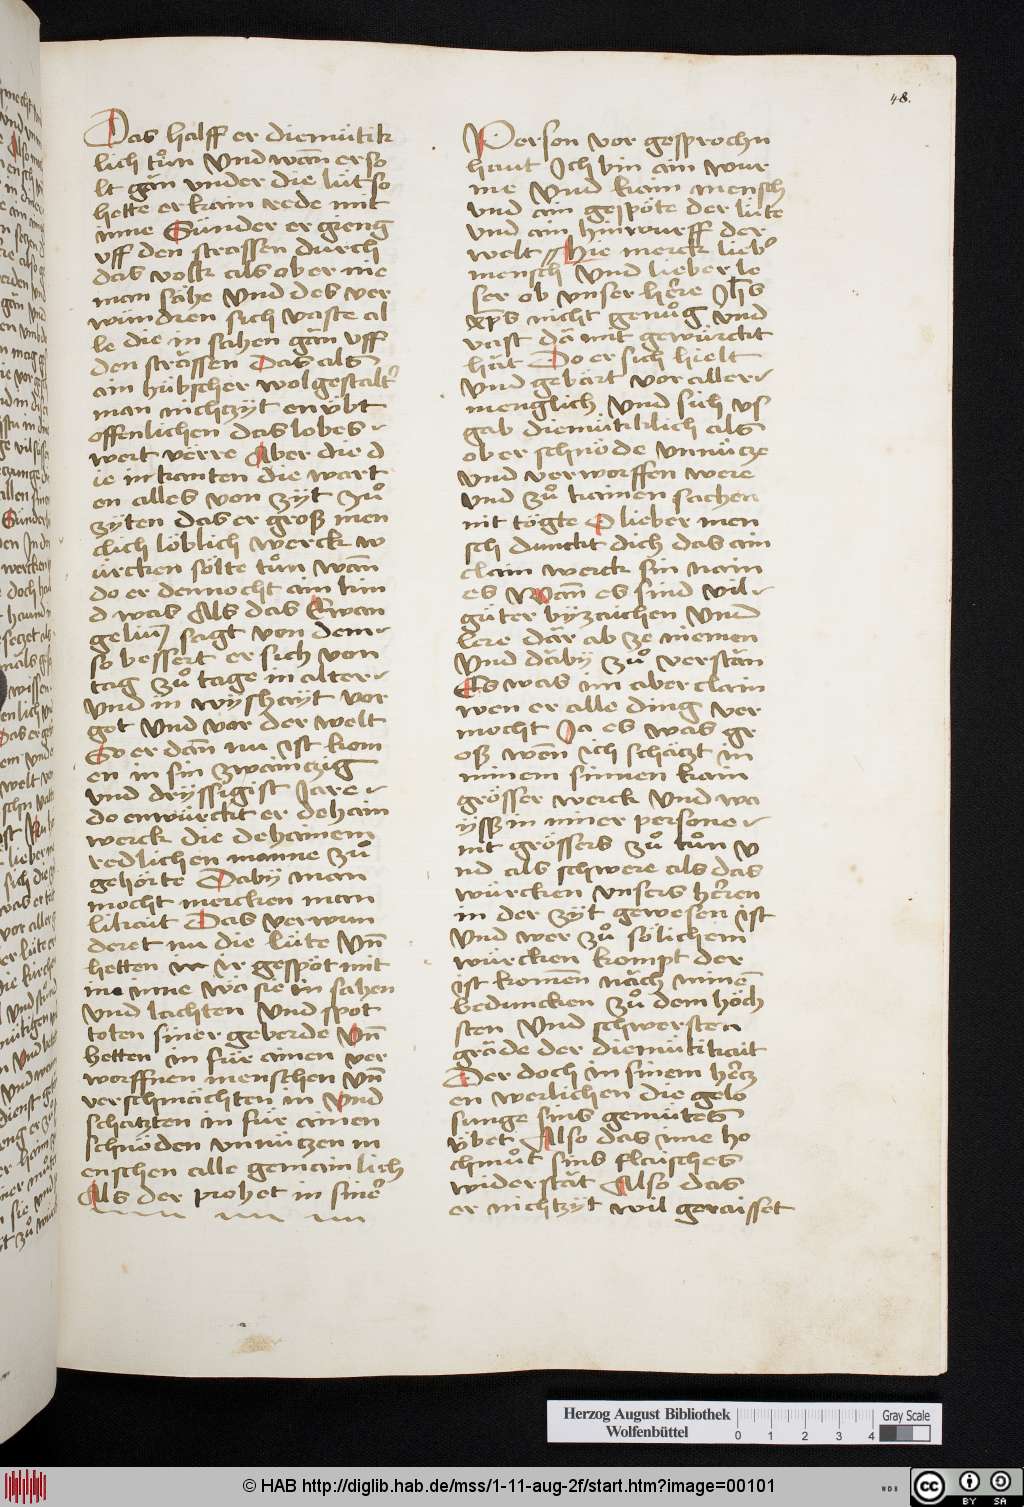 48.
Das halff er diemütik
lich tůn Vnd wañ er so
lt gān vnder die lüt so
hette er kain rede mit
inne Sünder er gieng
vff den strassen durch
das volk als ober nie
man sähe Vnd des ver
wündren sich vaste al
le die in sahen gān vff
den strässen Das als
ain hübscher wolgestalt
man nichtzyt en vbt
offenlichen das lobes
wert verre Aber die d
ie inkanten die wart
en alles von zyt zů
zyten das er groß men
clich löblich werck w
ürcken sölte tůn wañ
do er dennocht ain kin
d was Als das Ewan
geliū sagt von dem
so bessert er sich von
tag zů tage in alter
vnd in wyshayt vor
got Vnd vor der welt
So er dañ nu ist kom
en in sin zwaintzig
vnd dryssigist Jare
do enwürckt er dehain
werck die dehainem
redlichen manne zů
gehörte Daby man
mocht mercken man
likait Das verwun
deret nu die lüte Vn̄
hetten in ir gespöt mit
ime inne wa sie in sahen
vnd lachten Vnd spot
toten siner geberde Vn̄
hetten in für ainen ver
worffnen menschen Vn̄
verschmächten in Vnd
schatzten in für ainen
schnöden vnnützen m
enschen alle gemainlich
Als der prohet in siner
Person vor gesprochn
haut Jch bin ain wur
me Vnd kain mensch
vnd ain gespöte der lüte
vnd ain hinwurff der
welt Hie merck lieb
mensch Vnd lieber le
ser ob vnser herre Jhs
xp̄s nicht genůg vnd
vast dā mit gewürckt
hāt Do er sich hielt
Vnd gebārt vor aller
menglich Vnd sich vs
gab diemüticklich als
ober schnöde vnnütze
vnd verworffen were
vnd zů kainen sachen
nit tögte O lieber men
sch dunckt dich das ain
clain werck sin nain
es Wañ es sind vil
güter byzaichen Vnd
lere där ab ze niemen
Vnd däby zů verstān
Es was im aber clain
wen er alle ding ver
mocht Ja es was gr
oß wen̄ ich schätzt in
minem sinnen kain
grösser werck Vnd wa
ÿsß in niner persone
nit grössers zů tůn v
nd als schwere als das
würcken vnsers herren
in der zyt gewesen ist
Vnd wer zů sölichem
würcken kompt der
ist komen näch minē
beduncken zů dem höch
sten Vnd schwersten
gräde der diemütikait
Der doch in sinem hertz
en werlichen die gelo
sunge sins gemütes
v̈bet Also das ime ho
chmůt sins flaisches
widerstāt Also das
er nichtzyt wil geraisset
Herzog August Bibliothek
Wolfenbüttel
Gray Scale
0 1 2 3 4
© HAB http://diglib.hab.de/mss/1-11-aug-2f/start.htm?image=00101
WDB
cc BY SA